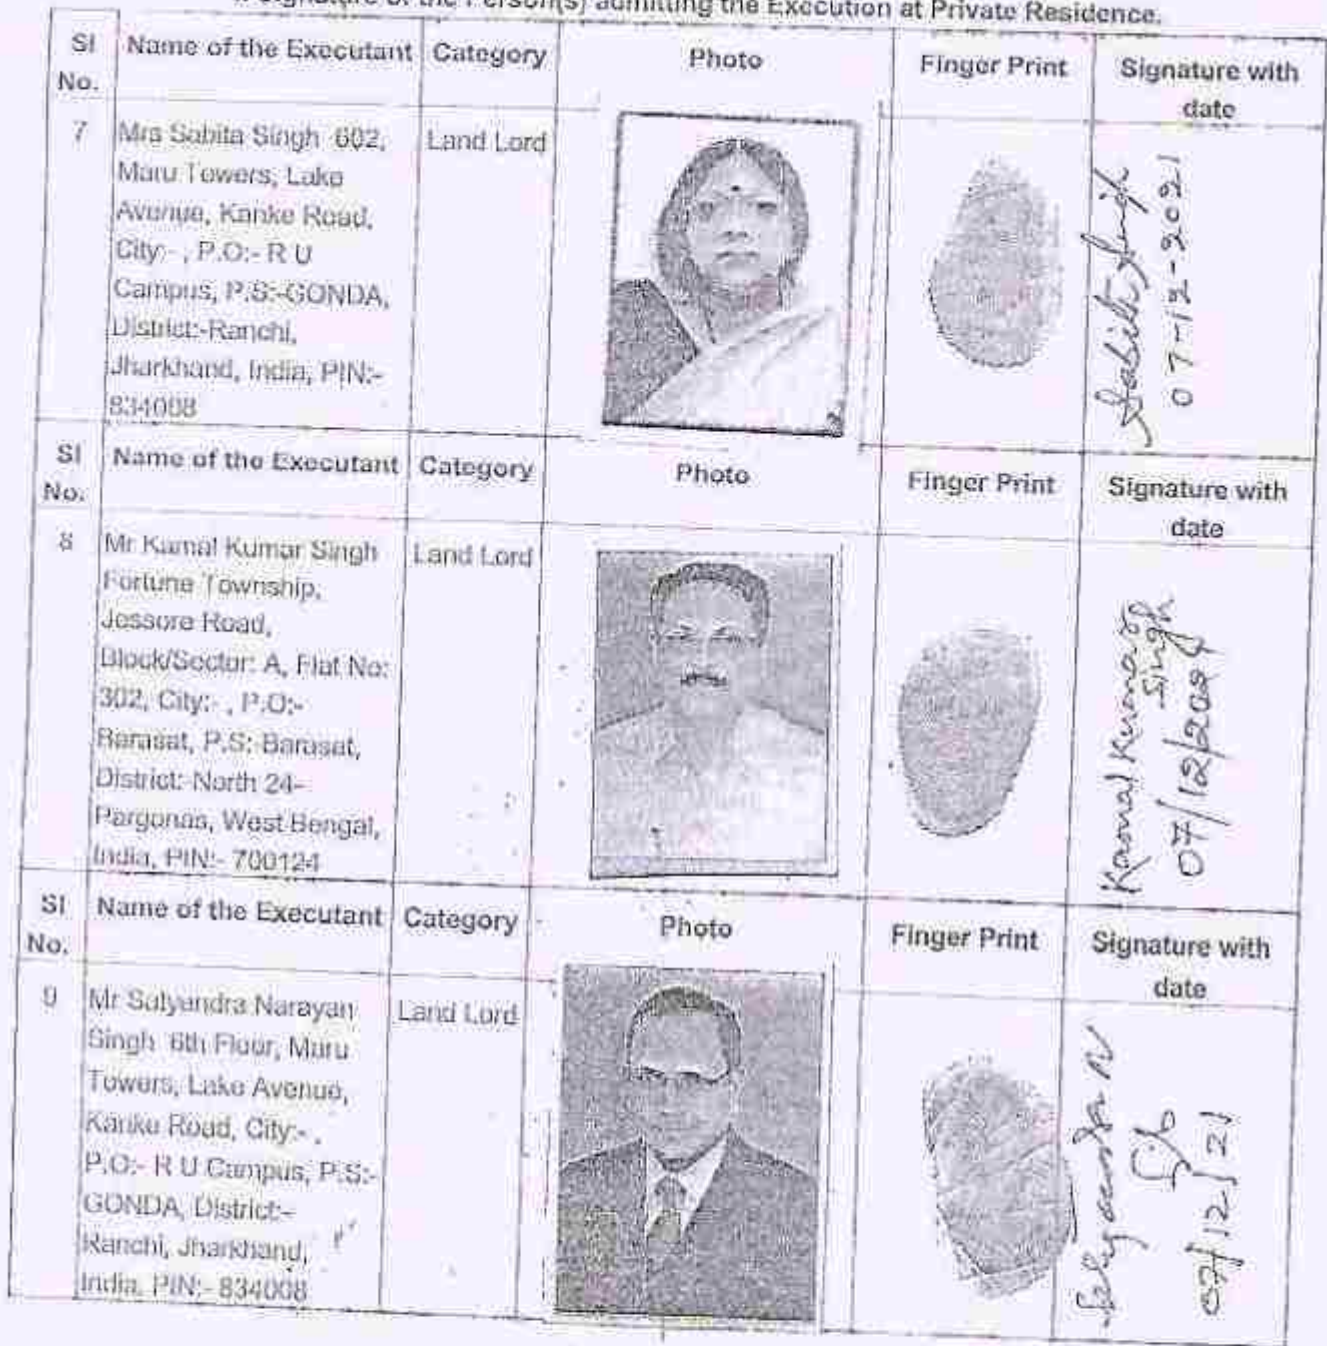 Signature of the Person(s) admitting the Execution at Private Residence.
Sl No. Name of the Executant Category Photo Finger Print Signature with date
7 Mrs Sabita Singh 602, Land Lord
Maru Towers, Lake
Avenue, Kanke Road,
City:- , P.O:- R U
Campus, P.S:-GONDA,
District:-Ranchi,
Jharkhand, India, PIN:-
834008
Sabita Singh
07-12-2021
Sl No. Name of the Executant Category Photo Finger Print Signature with date
8 Mr Kamal Kumar Singh Land Lord
Fortune Township,
Jessore Road,
Block/Sector: A, Flat No:
302, City:- , P.O:-
Barasat, P.S:-Barasat,
District:-North 24-
Parganas, West Bengal,
India, PIN:- 700124
Kamal Kumar
Singh
07/12/2021
Sl No. Name of the Executant Category Photo Finger Print Signature with date
9 Mr Satyendra Narayan Land Lord
Singh 6th Floor, Maru
Towers, Lake Avenue,
Kanke Road, City:- ,
P.O:- R U Campus, P.S:-
GONDA, District:-
Ranchi, Jharkhand,
India, PIN:- 834008
07/12/21